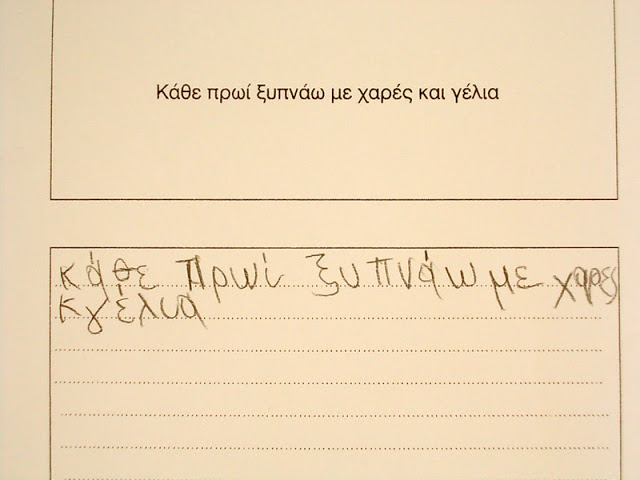 Κάθε πρωί ξυπνάω με χαρές και γέλια
κάθε πρωί ξυπνάω με χαρες
κ γέλια